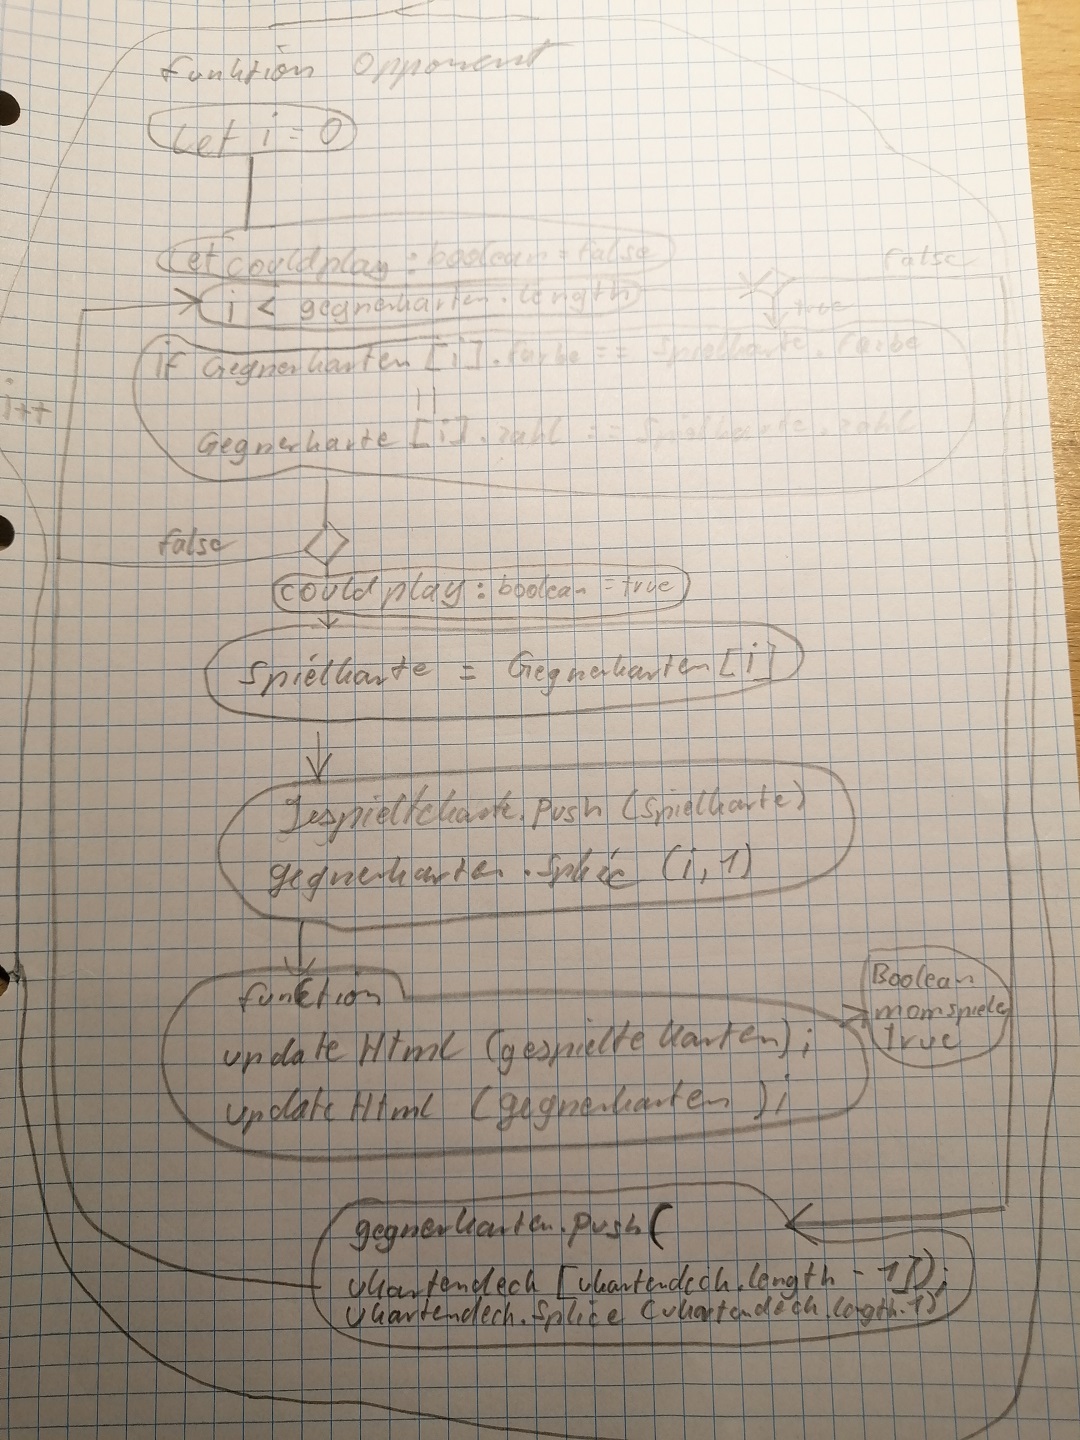 funktion Opponent
Let i = 0
Let couldplay : boolean = false
false
i < gegnerkarten.length
true
if Gegnerkarten [i].farbe == Spielkarte.farbe
||
i++
Gegnerkarte [i].zahl == Spielkarte.zahl
false
couldplay : boolean = true
Spielkarte = Gegnerkarten [i]
gespieltekarte.push (Spielkarte)
gegnerkarten.splice (i, 1)
funktion
Boolean
momspieler
true
update Html (gespielte karten);
update Html (gegnerkarten );
gegnerkarten.push(
ukartendeck [ukartendeck.length - 1]);
ukartendeck.splice (ukartendeck.length-1)